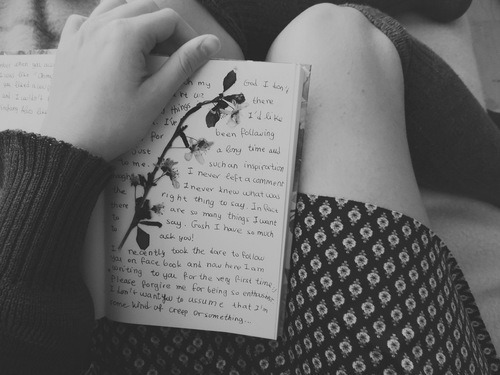 my God I don't
there
things I'd like
for been following
just a long time and
me. such an inspiration
I never left a comment
I never knew what was
the right thing to say. In fact
are so many things I want
to say. Gosh I have so much
to ask you!
I recently took the dare to follow
you on face book and now here I am
writing to you for the very first time,
Please forgive me for being so enthusias
I don't want you to assume that I'm
some kind of creep or something...